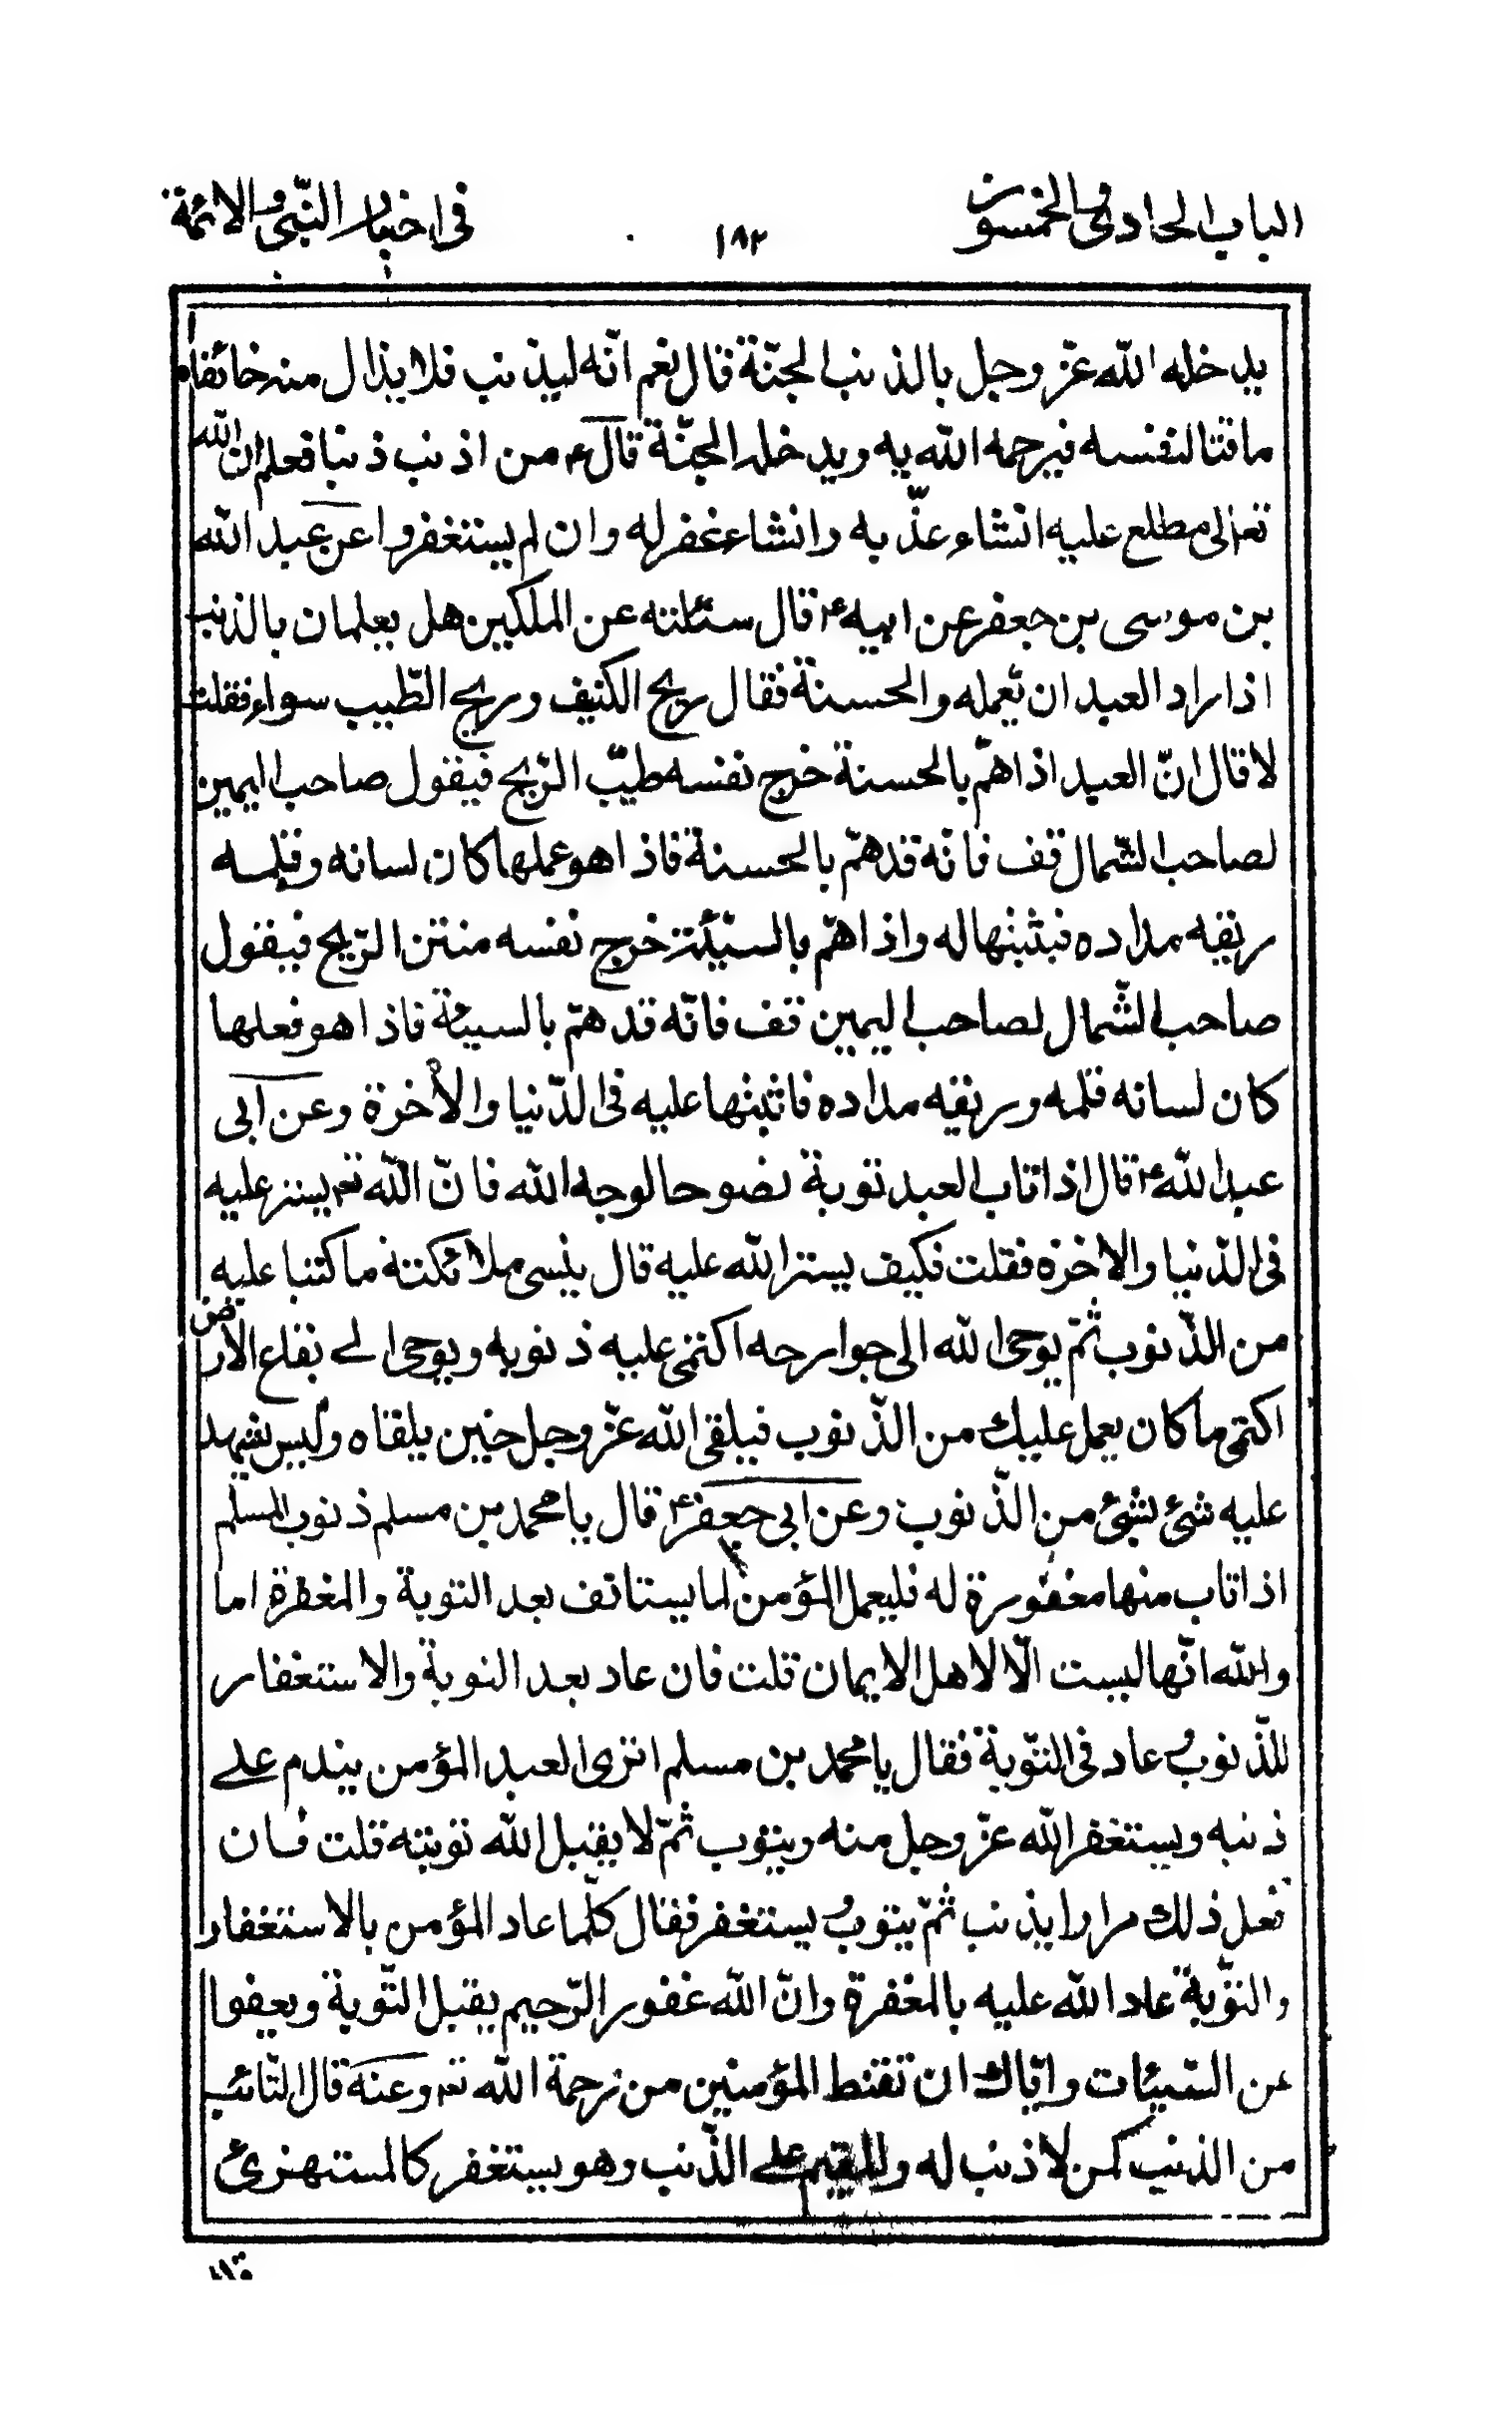 الباب الحادی والخمسون
١٨٢
فی اخبار النّبی والائمّة
يدخله الله عزّ وجل بالذنب الجنّة قال نعم انّه ليذنب فلا يذال منه خائفا م
ماقتا لنفسه فيرحمه الله به ويدخله الجنّة قال ع من اذنب ذنبا فعلم ان الله
تعالی مطلع عليه انشاء عذّبه وانشاء غفر له وان لم يستغفر وعن عبد الله
بن موسی بن جعفر عن ابيه ع قال سئلته عن الملكين هل يعلمان بالذنب
اذا اراد العبد ان يعمله والحسنة فقال ريح الكنيف وريح الطّيب سواء فقلت
لا قال انّ العبد اذا همّ بالحسنة خرج نفسه طيّب الرّيح فيقول صاحب اليمين
لصاحب الشّمال قف فانّه قد همّ بالحسنة فاذا هو عملها كان لسانه وقلمه
ريقه مداده فيثبتها له واذا همّ بالسيّئة خرج نفسه منتن الرّيح فيقول
صاحب الشّمال لصاحب اليمين قف فانّه قد همّ بالسيئة فاذا هو فعلها
كان لسانه قلمه وريقه مداده فاثبتها عليه فی الدّنيا والأخرة وعن ابی
عبد الله ع قال اذا تاب العبد توبة نضوحا لوجه الله فانّ الله تعه يستر عليه
فی الدّنيا والاخرة فقلت فكيف يستر الله عليه قال ينسی ملائكته ما كتبا عليه
من الذّنوب ثمّ يوحی الله الی جوارحه اكتمی عليه ذنوبه ويوحی الے بقاع الارض
اكتمی ما كان يعمل عليك من الذّنوب فيلقی الله عزّ وجل حين يلقاه وليس يشهد
عليه شئ بشئ من الذّنوب وعن ابی جعفر ع قال يا محمد بن مسلم ذنوب المسلم
اذا تاب منها مغفورة له فليعمل المؤمن لما يستانف بعد التوبة والمغفرة اما
والله انّها ليست الّا لاهل الايمان قلت فان عاد بعد التوبة والاستغفار
للذّنوب وعاد فی التّوبة فقال يا محمد بن مسلم اتری العبد المؤمن يندم علے
ذنبه ويستغفر الله عزّ وجل منه ويتوب ثمّ لا يقبل الله توبته قلت فان
فعل ذلك مرارا يذنب ثمّ يتوب ويستغفر فقال كلّما عاد المؤمن بالاستغفار
والتّوبة عاد الله عليه بالمغفرة وانّ الله غفور الرّحيم يقبل التّوبة ويعفوا
عن السّيئات وايّاك ان تقنط المؤمنين من رحمة الله تعه وعنه قال التّائب
من الذنب كمن لا ذنب له والمقيم علے الذّنب وهو يستغفر كالمستهزئ